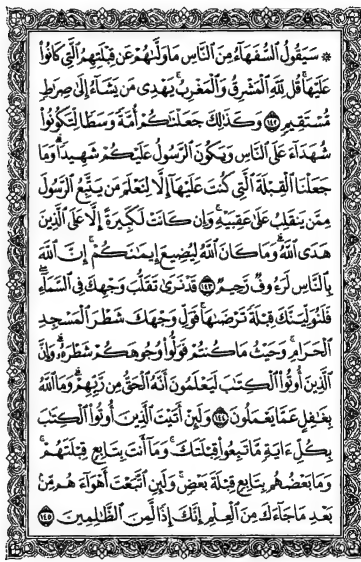 ۞ سَيَقُولُ ٱلسُّفَهَآءُ مِنَ ٱلنَّاسِ مَا وَلَّىٰهُمْ عَن قِبْلَتِهِمُ ٱلَّتِى كَانُوا۟
عَلَيْهَا ۚ قُل لِّلَّهِ ٱلْمَشْرِقُ وَٱلْمَغْرِبُ ۚ يَهْدِى مَن يَشَآءُ إِلَىٰ صِرَٰطٍ
مُّسْتَقِيمٍ ١٤٢ وَكَذَٰلِكَ جَعَلْنَٰكُمْ أُمَّةً وَسَطًا لِّتَكُونُوا۟
شُهَدَآءَ عَلَى ٱلنَّاسِ وَيَكُونَ ٱلرَّسُولُ عَلَيْكُمْ شَهِيدًا ۗ وَمَا
جَعَلْنَا ٱلْقِبْلَةَ ٱلَّتِى كُنتَ عَلَيْهَآ إِلَّا لِنَعْلَمَ مَن يَتَّبِعُ ٱلرَّسُولَ
مِمَّن يَنقَلِبُ عَلَىٰ عَقِبَيْهِ ۚ وَإِن كَانَتْ لَكَبِيرَةً إِلَّا عَلَى ٱلَّذِينَ
هَدَى ٱللَّهُ ۗ وَمَا كَانَ ٱللَّهُ لِيُضِيعَ إِيمَٰنَكُمْ ۚ إِنَّ ٱللَّهَ
بِٱلنَّاسِ لَرَءُوفٌ رَّحِيمٌ ١٤٣ قَدْ نَرَىٰ تَقَلُّبَ وَجْهِكَ فِى ٱلسَّمَآءِ ۖ
فَلَنُوَلِّيَنَّكَ قِبْلَةً تَرْضَىٰهَا ۚ فَوَلِّ وَجْهَكَ شَطْرَ ٱلْمَسْجِدِ
ٱلْحَرَامِ ۚ وَحَيْثُ مَا كُنتُمْ فَوَلُّوا۟ وُجُوهَكُمْ شَطْرَهُۥ ۗ وَإِنَّ
ٱلَّذِينَ أُوتُوا۟ ٱلْكِتَٰبَ لَيَعْلَمُونَ أَنَّهُ ٱلْحَقُّ مِن رَّبِّهِمْ ۗ وَمَا ٱللَّهُ
بِغَٰفِلٍ عَمَّا يَعْمَلُونَ ١٤٤ وَلَئِنْ أَتَيْتَ ٱلَّذِينَ أُوتُوا۟ ٱلْكِتَٰبَ
بِكُلِّ ءَايَةٍ مَّا تَبِعُوا۟ قِبْلَتَكَ ۚ وَمَآ أَنتَ بِتَابِعٍ قِبْلَتَهُمْ ۚ
وَمَا بَعْضُهُم بِتَابِعٍ قِبْلَةَ بَعْضٍ ۚ وَلَئِنِ ٱتَّبَعْتَ أَهْوَآءَهُم مِّنۢ
بَعْدِ مَا جَآءَكَ مِنَ ٱلْعِلْمِ ۙ إِنَّكَ إِذًا لَّمِنَ ٱلظَّٰلِمِينَ ١٤٥